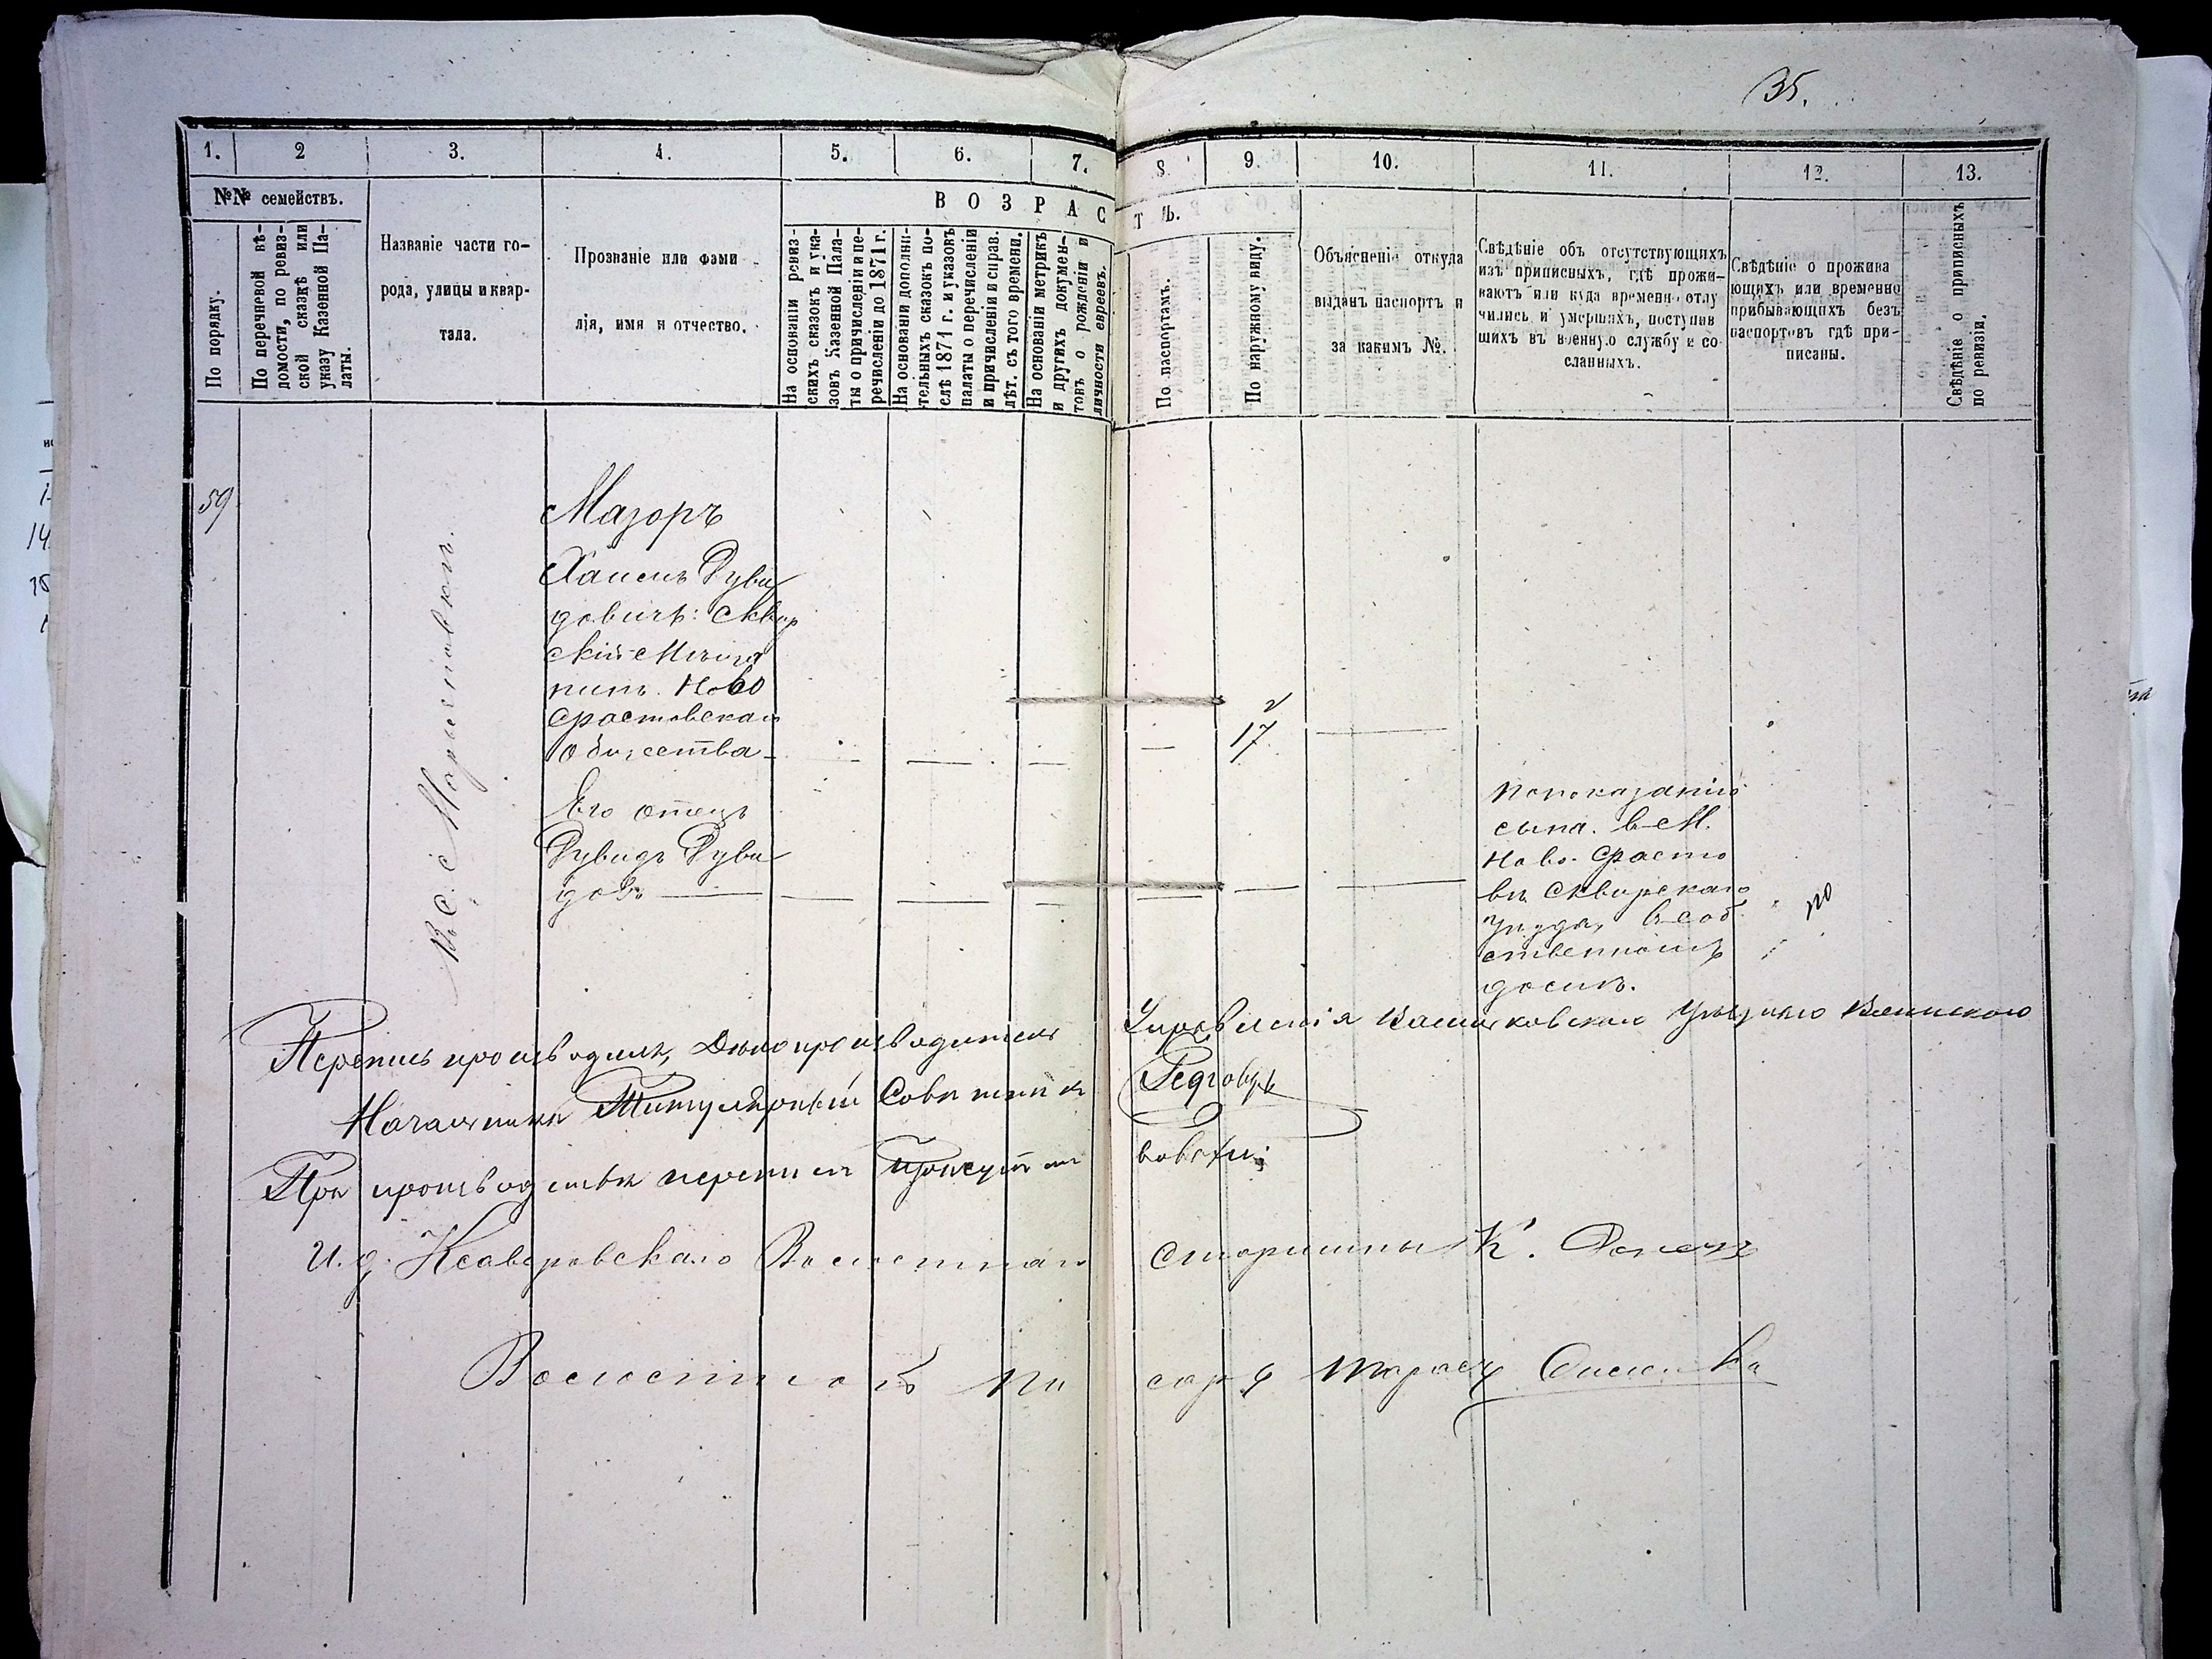 35.
1. 2 3. 4. 5. 6. 7. 8. 9. 10. 11. 12. 13.
№№ семействъ.
По порядку.
По перечневой вѣ-
домости, по ревиз-
ской сказкѣ или
указу Казенной Па-
латы.
Названіе части го-
рода, улицы и квар-
тала.
Прозваніе или фами
лія, имя и отчество.
ВОЗРАС
ТЪ.
На основаніи ревиз-
скихъ сказокъ и ука-
зовъ Казенной Пала-
ты о причисленіи и пе-
речисленіи до 1871 г.
На основаніи дополни-
тельныхъ сказокъ по-
слѣ 1871 г. и указовъ
палаты о перечисленіи
и причисленіи и справ.
лѣт. съ того времени.
На основаніи метрикъ
и другихъ докумен-
товъ о рожденіи и
личности евреевъ.
По паспортамъ.
По наружному виду.
Объясненіе откуда
выданъ паспортъ и
за какимъ №.
Свѣдѣніе объ отсутствующихъ
изъ приписныхъ, гдѣ прожи-
ваютъ или куда временно отлу
чились и умершихъ, поступив
шихъ въ военную службу и со
сланныхъ.
Свѣдѣніе о прожива
ющихъ или временно
прибывающихъ безъ
паспортовъ гдѣ при-
писаны.
Свѣдѣніе о приписныхъ
по ревизіи.
59
Въ с.
Мазоръ
Рувы
довичъ: Сквир
скій Мѣща
нинъ. Ново
Фастовскаго
Общества
17
Его отецъ
Рувидъ Руви
довъ
По показанію
сына. въ М.
Ново. Фасто
вѣ Сквирскаго
Уѣзда, въ соб
ственномъ
домѣ.
Перепись производилъ, Дѣлопроизводитель Управленія Васильковскаго Уѣзднаго Воинскаго
Начальника Титулярный Совѣтникъ
При производствѣ переписи присутствовали:
И. д. Ксаверовскаго Волостнаго Старшины К.
Волостной Писарь Тарасъ